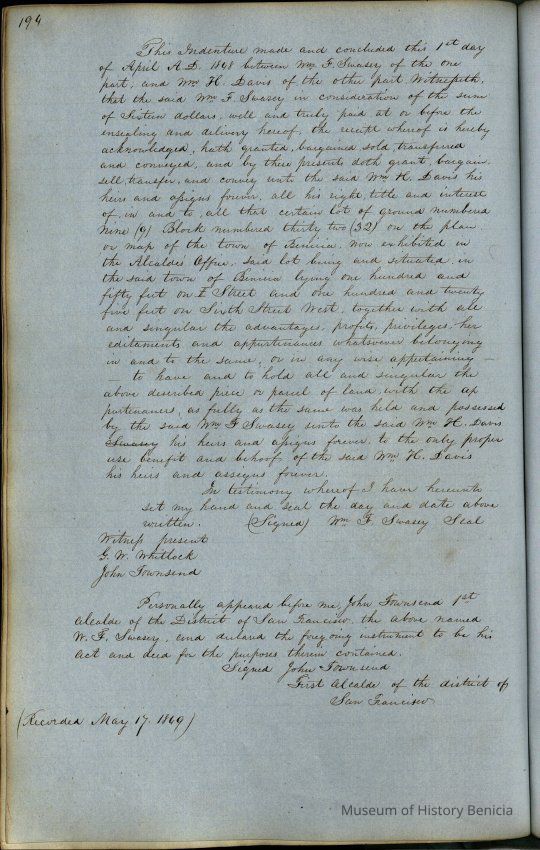 194
This Indenture made and concluded this 1st day
of April A.D. 1848 between Wm F. Swasey of the one
part, and Wm H. Davis of the other part Witnesseth,
that the said Wm F. Swasey in consideration of the sum
of Sixteen dollars, well and truly paid at or before the
ensealing and delivery hereof, the receipt whereof is hereby
acknowledged, hath granted, bargained sold, transferred
and conveyed, and by these presents doth grant, bargain,
sell, transfer, and convey unto the said Wm H. Davis his
heirs and assigns forever, all his right, title and interest
of, in and to, all that certain lot of ground numbered
nine (9) Block numbered thirty two (32) on the plan
or map of the town of Benicia, now exhibited in
the Alcaldes Office, said lot being and situated in
the said town of Benicia lying one hundred and
fifty feet on I Street and one hundred and twenty
five feet on Sixth Street West, together with all
and singular the advantages, profits, privileges, her
editaments and appurtenances whatsoever belonging
in and to the same, or in any wise appertaining —
— to have and to hold all and singular the
above described piece or parcel of land, with the ap
purtenances, as fully as the same was held and possessed
by the said Wm F Swasey unto the said Wm H. Davis
Swasey his heirs and assigns forever, to the only proper
use benefit and behoof of the said Wm H. Davis
his heirs and assigns forever.
In testimony whereof I have hereunto
set my hand and seal the day and date above
written. (Signed) Wm F Swasey Seal
Witness present
G. W. Whitlock
John Townsend
Personally appeared before me, John Townsend 1st
Alcalde of the District of San Francisco, the above named
W. F. Swasey, and declared the foregoing instrument to be his
act and deed for the purposes therein contained.
Signed John Townsend
First Alcalde of the district of
San Francisco
(Recorded May 17, 1849)
Museum of History Benicia